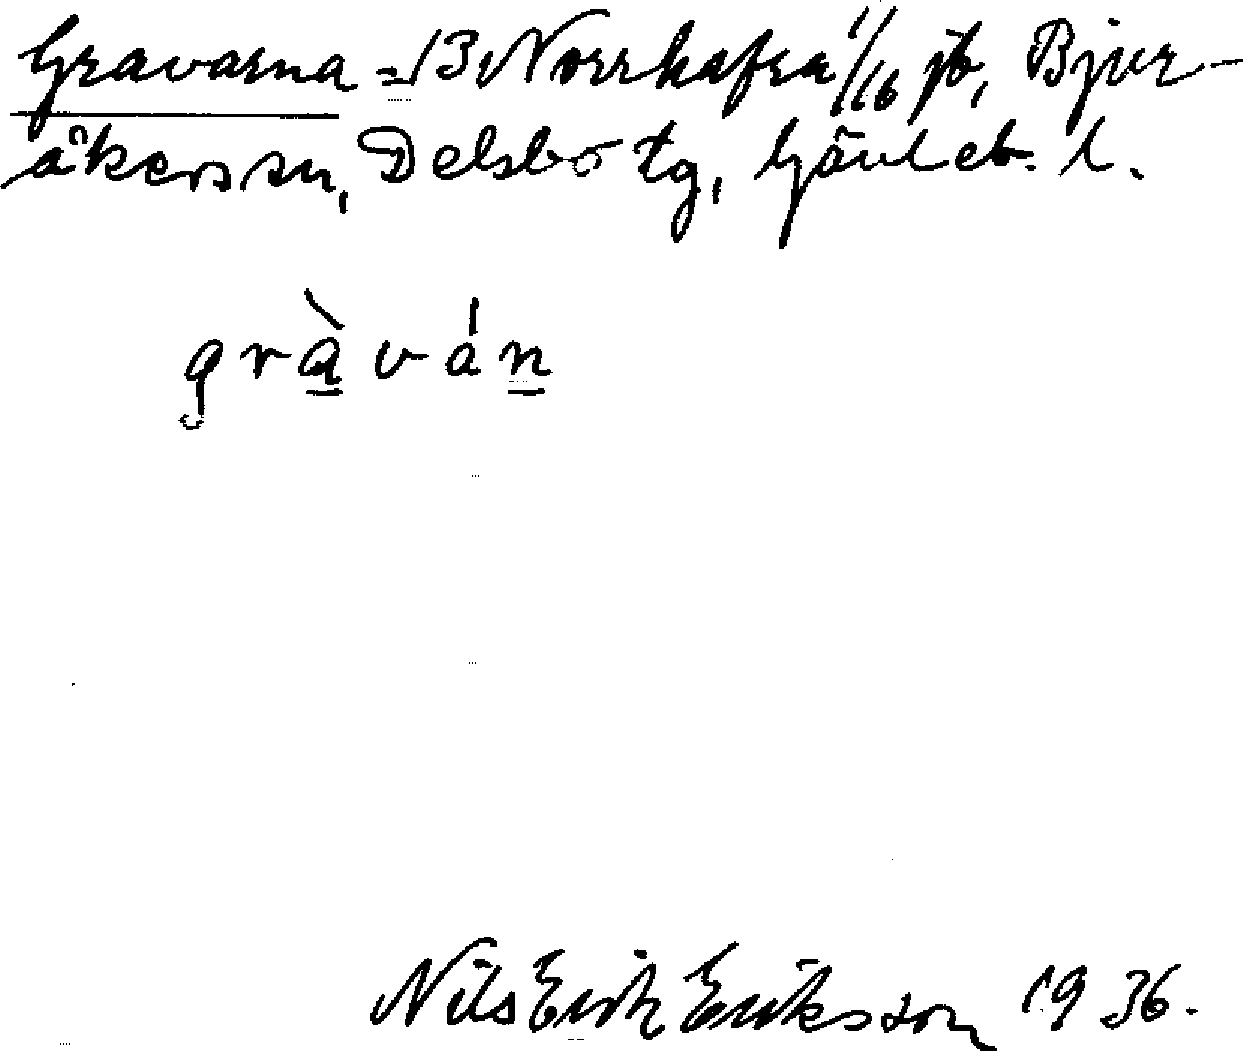 Gravarna = 13 Norrhafra 1/16 jb, Bjur-
åkers sn, Delsbo tg, Gävleb. l.
gràván
Nils Erik Eriksson 1936.